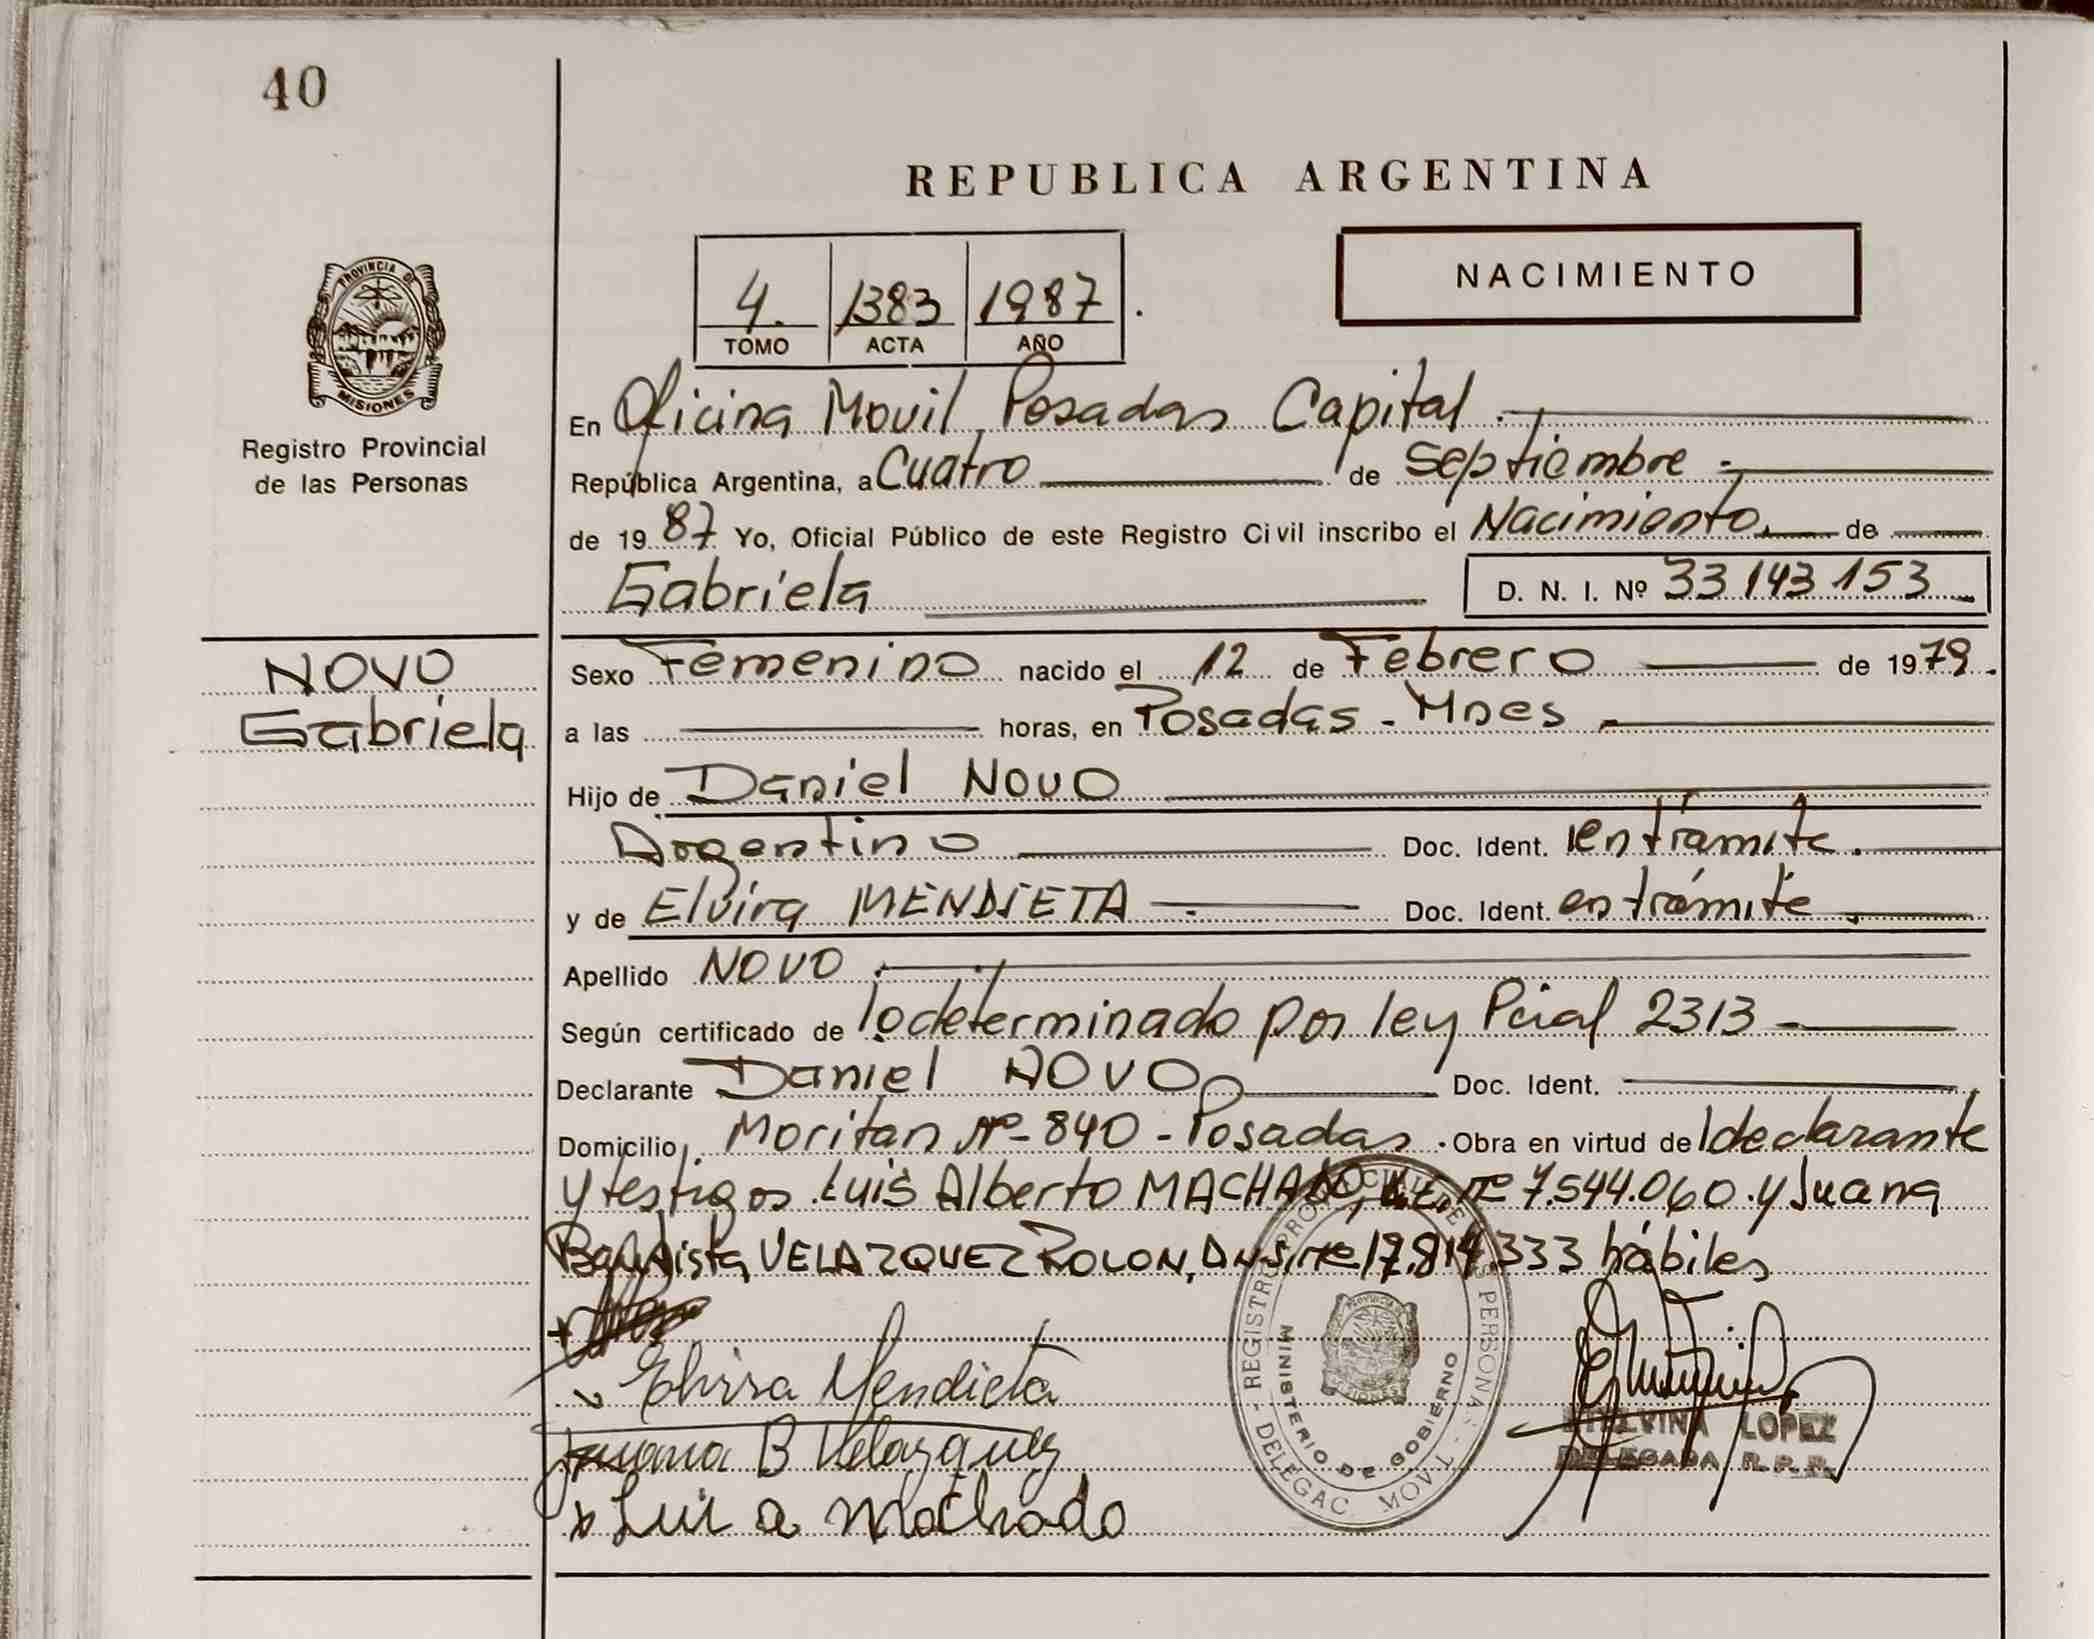 40
REPUBLICA ARGENTINA
NACIMIENTO
4. 1383 1987
TOMO ACTA AÑO
PROVINCIA DE
MISIONES
Registro Provincial
de las Personas
En Oficina Movil Posadas Capital.
República Argentina, a Cuatro de Septiembre
de 1987 Yo, Oficial Público de este Registro Civil inscribo el Nacimiento de
Gabriela D. N. I. Nº 33 143 153
NOVO
Gabriela
Sexo Femenino nacido el 12 de Febrero de 1979.
a las horas, en Posadas - Mnes
Hijo de Daniel NOVO
Argentino Doc. Ident. en trámite.
y de Elvira MENDIETA Doc. Ident. en trámite
Apellido NOVO
Según certificado de lo determinado por ley Pcial 2313
Declarante Daniel NOVO Doc. Ident.
Domicilio Moritan Nº 840 - Posadas. Obra en virtud de declarante
y testigos Luis Alberto MACHADO, Nº 7.544.060 y Juana
Bautista VELAZQUEZ ROLON, 333 hábiles
Elvira Mendieta
Juana B Velazquez
Luis A Machado
REGISTRO PROVINCIAL DE LAS PERSONAS - DELEGAC. MOVIL
MINISTERIO DE GOBIERNO
LOPEZ
DELEGADA R.P.P.